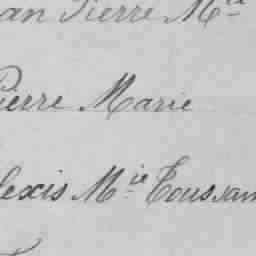 an Pierre M^ie
Pierre Marie
lexis M^ie Toussain